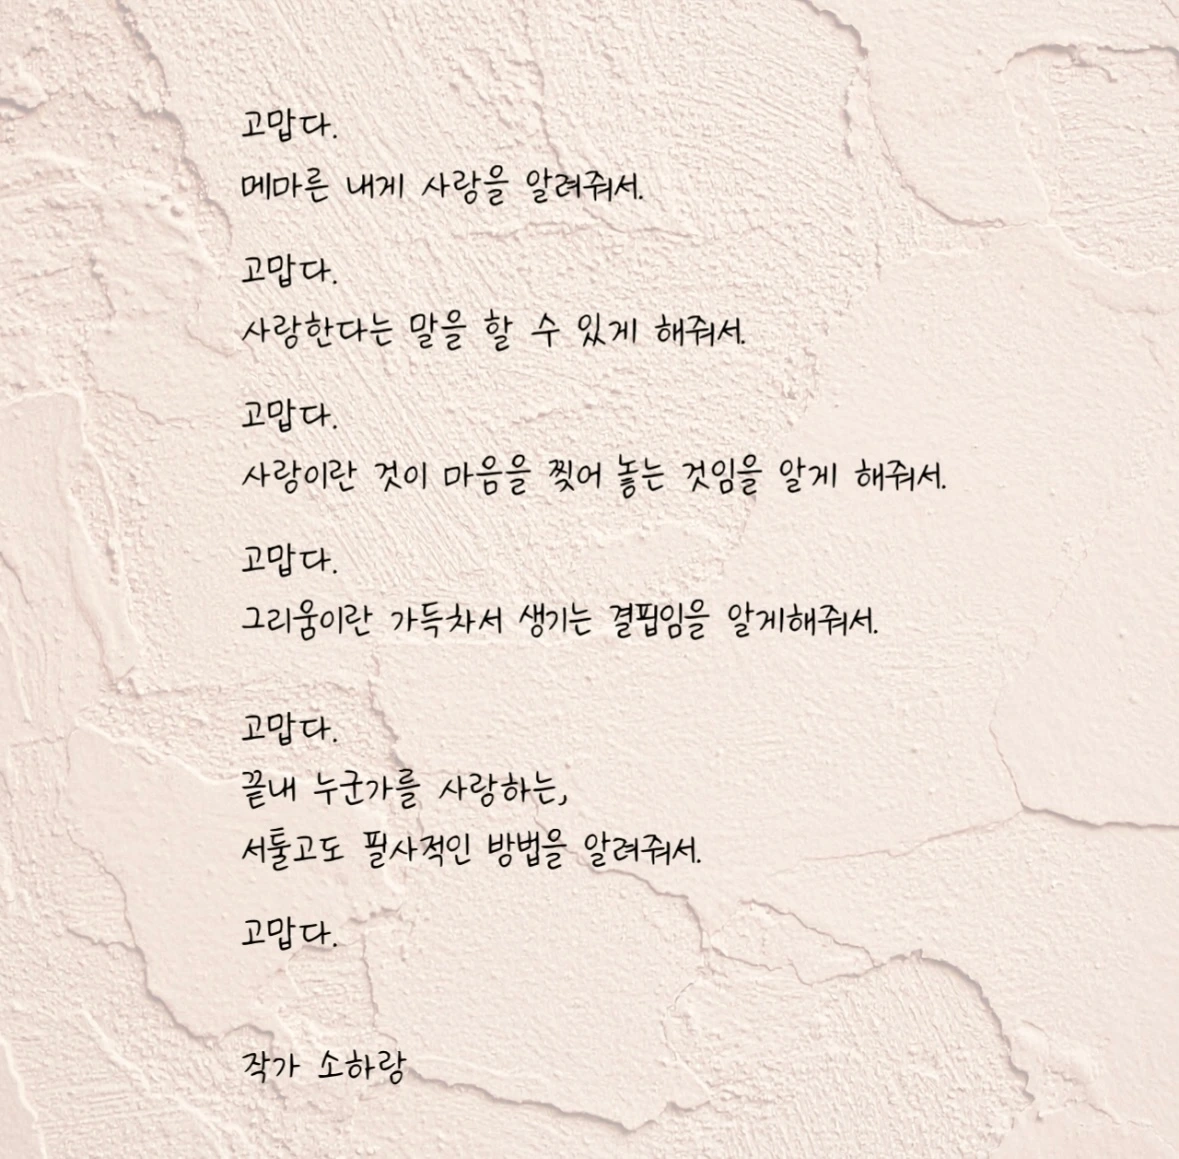 고맙다.
메마른 내게 사랑을 알려줘서.
고맙다.
사랑한다는 말을 할 수 있게 해줘서.
고맙다.
사랑이란 것이 마음을 찢어 놓는 것임을 알게 해줘서.
고맙다.
그리움이란 가득차서 생기는 결핍임을 알게해줘서.
고맙다.
끝내 누군가를 사랑하는,
서툴고도 필사적인 방법을 알려줘서.
고맙다.
작가 소하랑